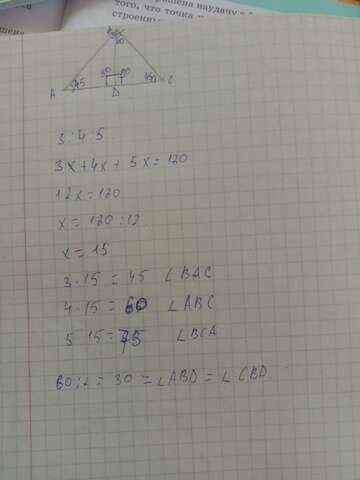 того, что точка
строени
45
90
90
A
D
C
3:4:5
3x+4x+5x=180
12x=180
x=180:12
x=15
3·15=45 ∠BAC
4·15=60 ∠ABC
5 15=75 ∠BCA
60:2=30=∠ABD=∠CBD